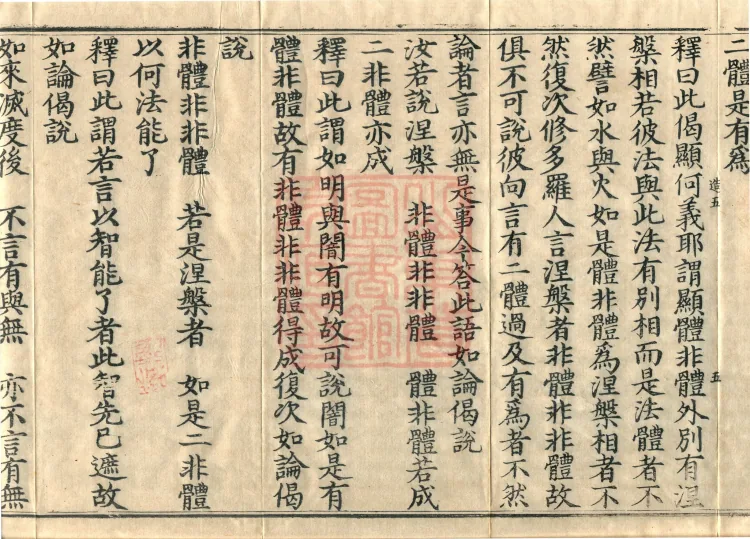 二體是有爲
釋曰此偈顯何義耶謂顯體非體外別有涅
槃相若彼法與此法有別相而是法體者不
然譬如水與火如是體非體爲涅槃相者不
然復次修多羅人言涅槃者非體非非體故
俱不可說彼向言有二體過及有爲者不然
論者言亦無是事今答此語如論偈說
汝若說涅槃　非體非非體　體非體若成
二非體亦成
釋曰此謂如明與闇有明故可說闇如是有
體非體故有非體非非體得成復次如論偈
說
非體非非體　若是涅槃者　如是二非體
以何法能了
釋曰此謂若言以智能了者此智先已遮故
如論偈說
如來滅度後　不言有與無　亦不言有無
造五
五